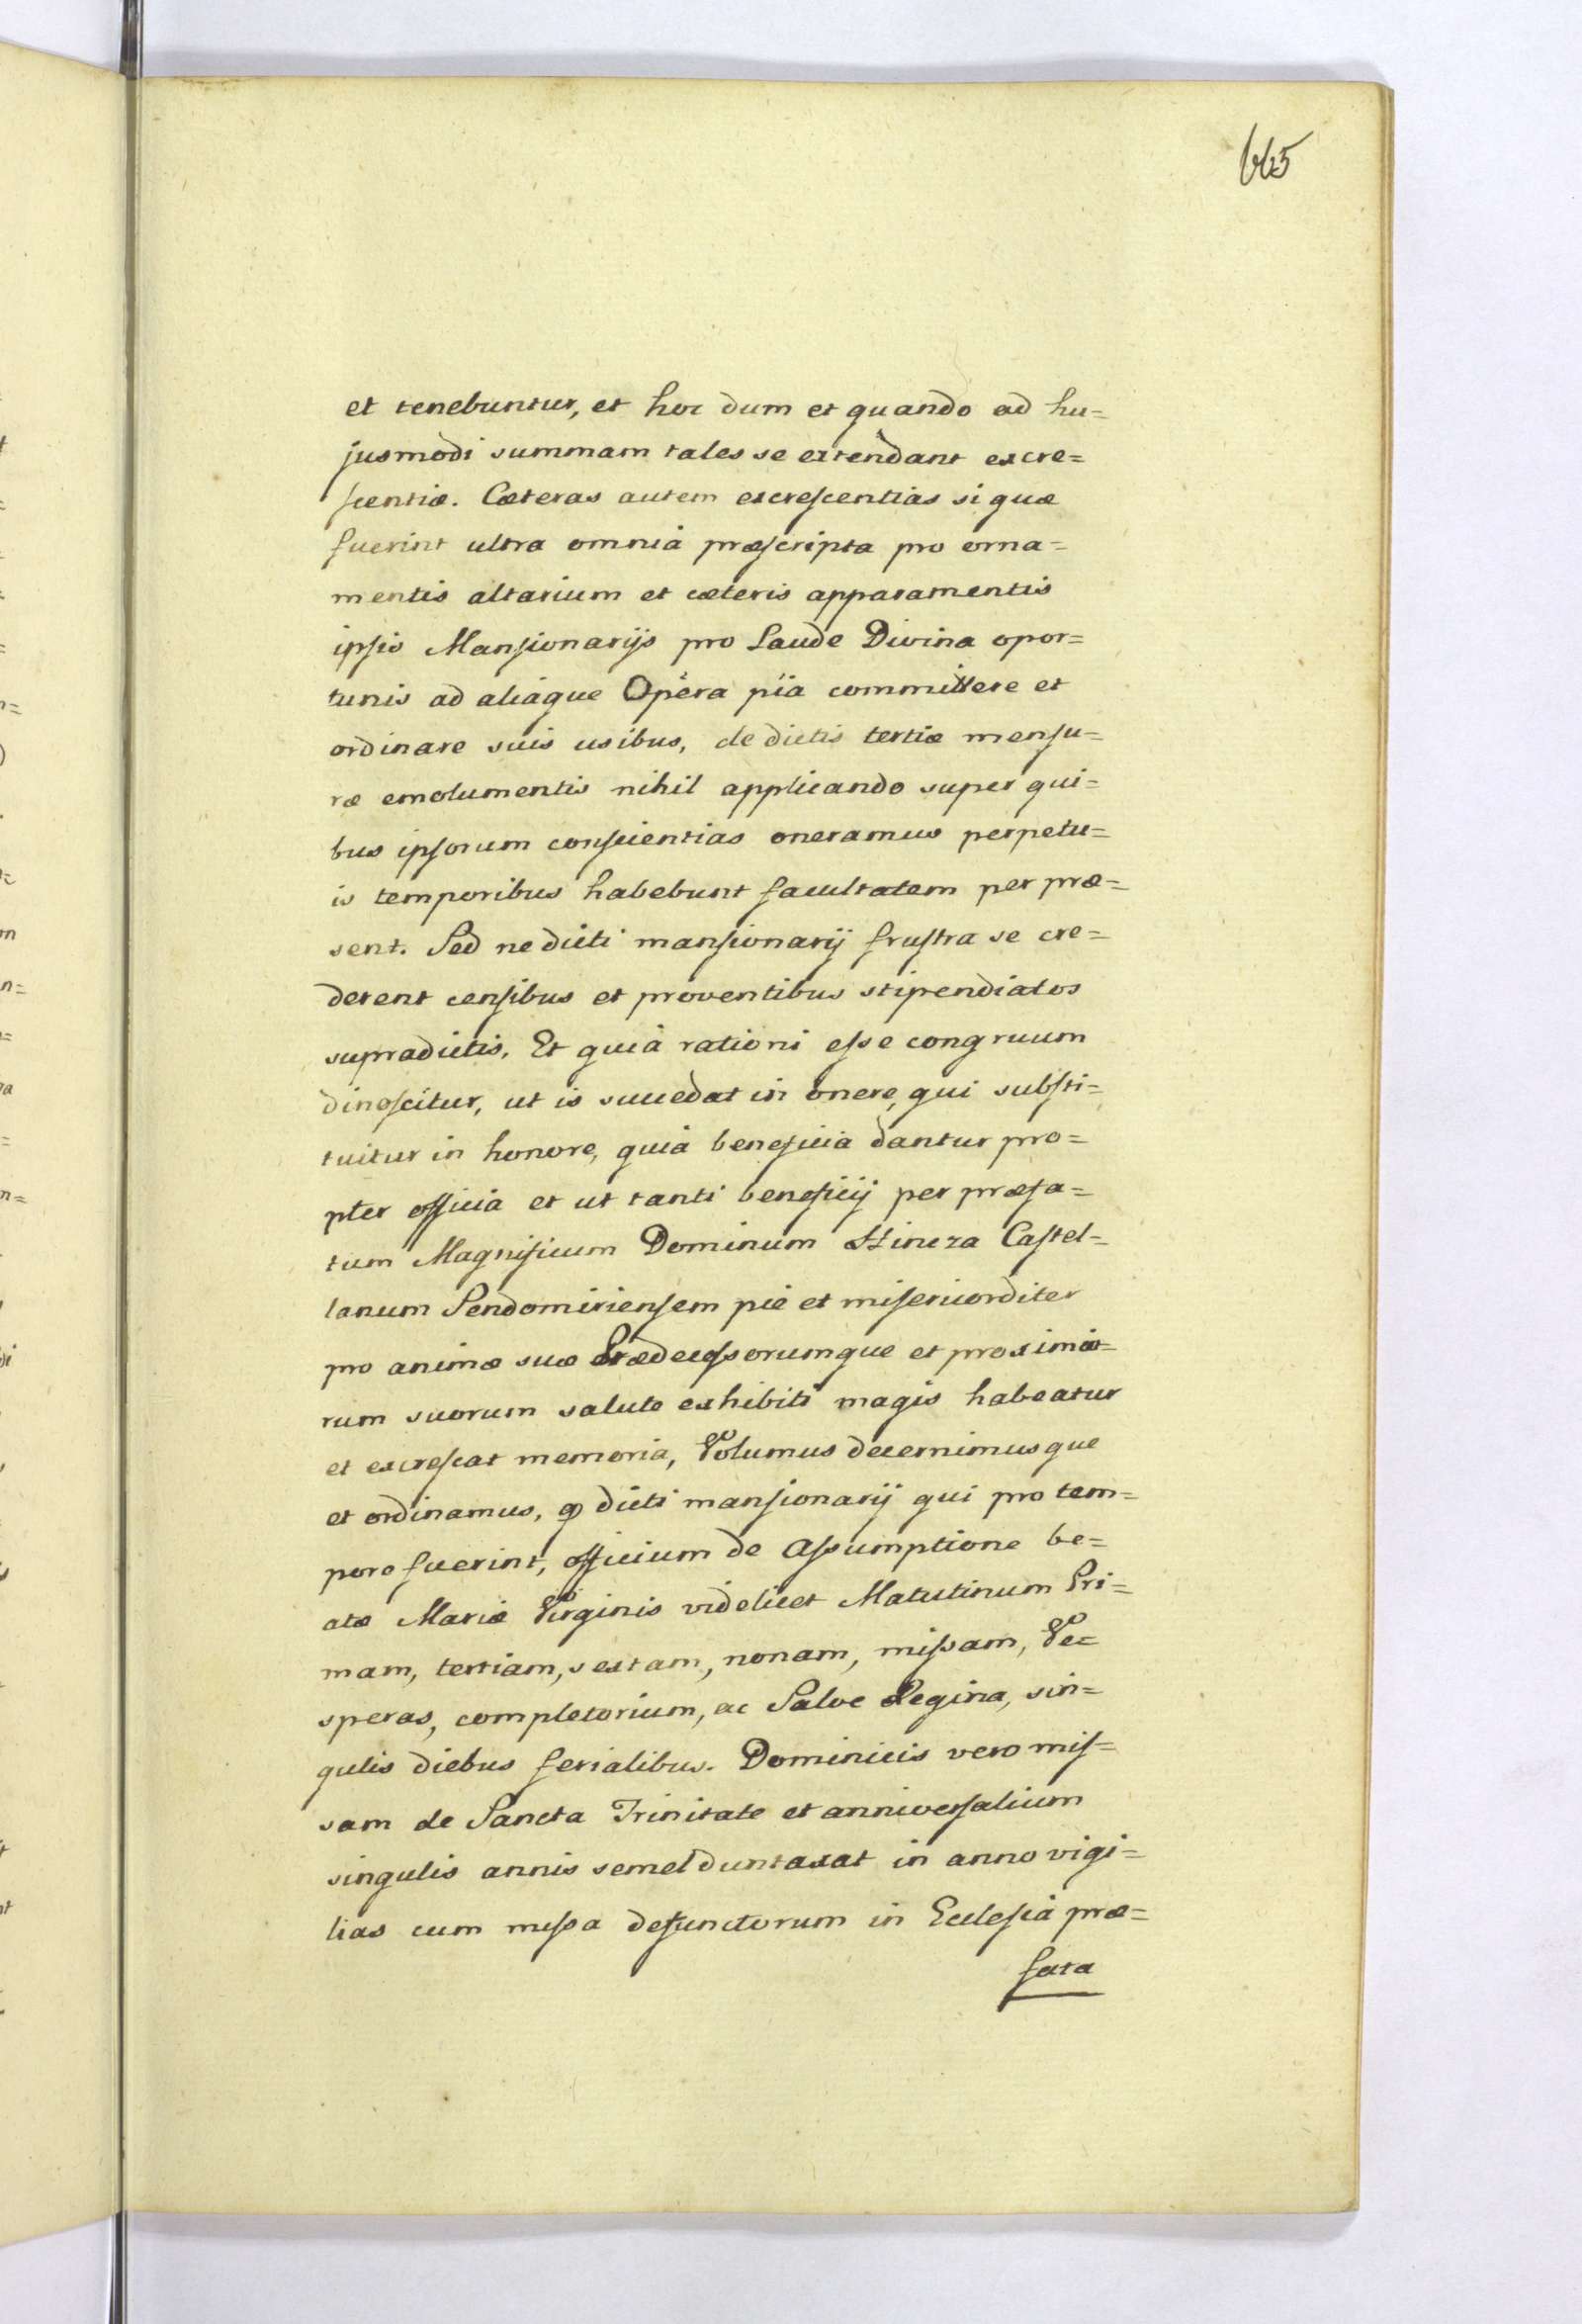 665
et tenebuntur, et hoc dum et quando ad hu=
jusmodi summam tales se extendant excre=
scentiæ. Cæteras autem excrescentias si quæ
fuerint ultra omnià præscripta pro orna=
mentis altarium et cæteris apparamentis
ipsis Mansionarijs pro Laude Divina opor=
tunis ad aliàque Opèra pïa committere et
ordinare suis usibus, de dictis tertiæ mensu=
ræ emolumentis nihil applicando super qui=
bus ipsorum conscientias oneramus perpetu=
is temporibus habebunt facultatem per præ=
sent. Sed ne dicti mansionarij frustra se cre=
derent censibus et proventibus stipendiatos
supradictis. Et quià rationi esse congruum
dinoscitur, ut is succedat in onere, qui substi=
tuitur in honore, quià beneficia dantur pro=
pter officia et ut tanti beneficij per præfa=
tum Magnificum Dominum Hincza Castel=
lanum Sendomiriensem pie et misericorditer
pro animæ suæ Prædecessorumque et proximo=
rum suorum salute exhibiti magis habeatur
et excrescat memoria, Volumus decernimusque
et ordinamus, q dicti mansionarij qui pro tem=
pore fuerint, officium de Assumptione be=
atæ Mariæ Virginis videlicet Matutinum Pri=
mam, tertiam, sextam, nonam, missam, Ve=
speras, completorium, ac Salve Regina, sin=
gulis diebus ferialibus. Dominicis vero mis=
sam de Sancta Trinitate et anniversalium
singulis annis semel duntaxat in anno vigi=
lias cum missa defunctorum in Ecclesià præ=
fata